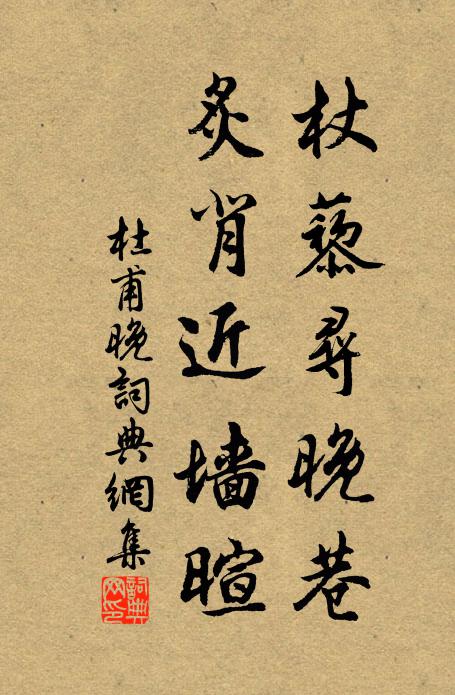 杖藜尋晚巷
炙背近墙暄
杜甫晚詞典網集
詞典
网印